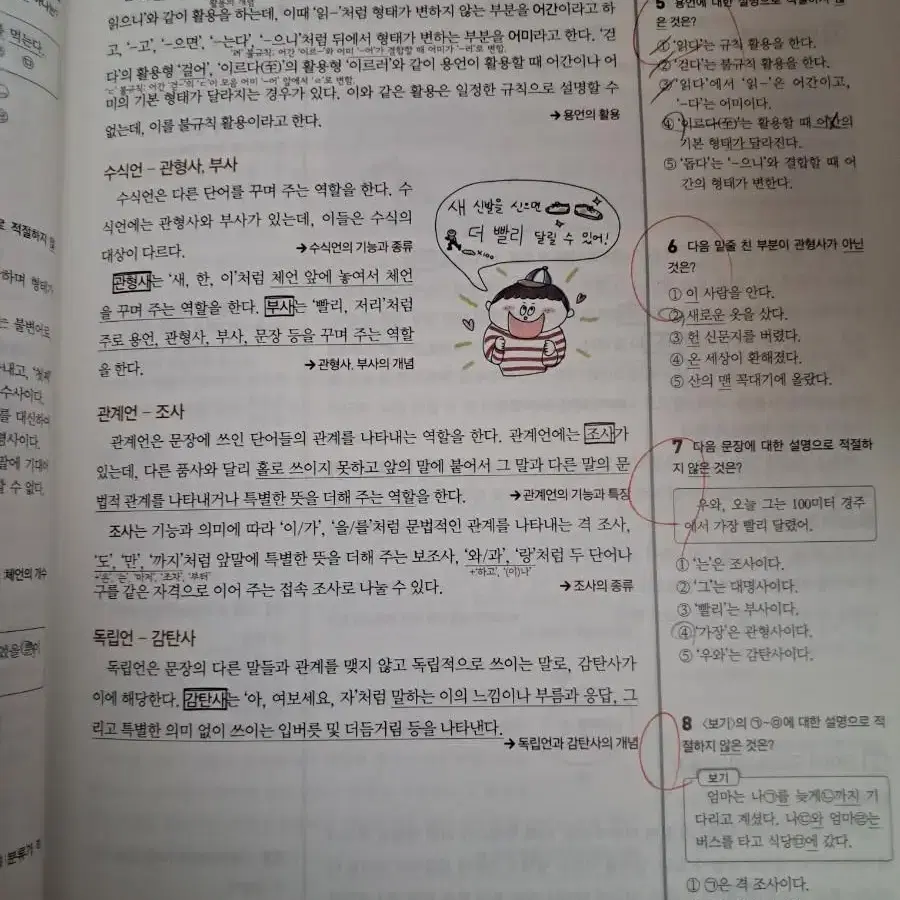 먹는다.
읽으니'와 같이 활용을 하는데, 이때 '읽-'처럼 형태가 변하지 않는 부분을 어간이라고 하
고, '-고', '-으면', '-는다', '-으니'처럼 뒤에서 형태가 변하는 부분을 어미라고 한다. '걷
'러' 불규칙: 어간 '이르-'와 어미 '-어'가 결합할 때 어미가 '-러'로 변함.
다'의 활용형 '걸어', '이르다(至)'의 활용형 '이르러'와 같이 용언이 활용할 때 어간이나 어
'ㄷ' 불규칙: 어간 '걷-'의 'ㄷ'이 모음 어미 '-어' 앞에서 'ㄹ'로 변함.
미의 기본 형태가 달라지는 경우가 있다. 이와 같은 활용은 일정한 규칙으로 설명할 수
없는데, 이를 불규칙 활용이라고 한다.
→ 용언의 활용
수식언 – 관형사, 부사
수식언은 다른 단어를 꾸며 주는 역할을 한다. 수
식언에는 관형사와 부사가 있는데, 이들은 수식의
대상이 다르다.
→ 수식언의 기능과 종류
관형사는 '새, 한, 이'처럼 체언 앞에 놓여서 체언
을 꾸며 주는 역할을 한다. 부사는 '빨리, 저리'처럼
주로 용언, 관형사, 부사, 문장 등을 꾸며 주는 역할
을 한다.
→ 관형사, 부사의 개념
새 신발을 신으면
더 빨리 달릴 수 있어!
x100
관계언 – 조사
관계언은 문장에 쓰인 단어들의 관계를 나타내는 역할을 한다. 관계언에는 조사가
있는데, 다른 품사와 달리 홀로 쓰이지 못하고 앞의 말에 붙어서 그 말과 다른 말의 문
법적 관계를 나타내거나 특별한 뜻을 더해 주는 역할을 한다.
→ 관계언의 기능과 특징
조사는 기능과 의미에 따라 '이/가', '을/를'처럼 문법적인 관계를 나타내는 격 조사,
'도', '만', '까지'처럼 앞말에 특별한 뜻을 더해 주는 보조사, '와/과', '랑'처럼 두 단어나
+'은', '는', '마저', '조차', '부터'
+'하고', '(이)나'
구를 같은 자격으로 이어 주는 접속 조사로 나눌 수 있다.
→ 조사의 종류
독립언 – 감탄사
독립언은 문장의 다른 말들과 관계를 맺지 않고 독립적으로 쓰이는 말로, 감탄사가
이에 해당한다. 감탄사는 '아, 여보세요, 자'처럼 말하는 이의 느낌이나 부름과 응답, 그
리고 특별한 의미 없이 쓰이는 입버릇 및 더듬거림 등을 나타낸다.
→ 독립언과 감탄사의 개념
5 용언에 대한 설명으로 적절하지 않
은 것은?
① '읽다'는 규칙 활용을 한다.
② '걷다'는 불규칙 활용을 한다.
③ '읽다'에서 '읽-'은 어간이고,
'-다'는 어미이다.
④ '이르다(至)'는 활용할 때 어간의
기본 형태가 달라진다.
⑤ '돕다'는 '-으니'와 결합할 때 어
간의 형태가 변한다.
6 다음 밑줄 친 부분이 관형사가 아닌
것은?
① 이 사람을 안다.
② 새로운 옷을 샀다.
③ 헌 신문지를 버렸다.
④ 온 세상이 환해졌다.
⑤ 산의 맨 꼭대기에 올랐다.
7 다음 문장에 대한 설명으로 적절하
지 않은 것은?
우와, 오늘 그는 100미터 경주
에서 가장 빨리 달렸어.
① '는'은 조사이다.
② '그'는 대명사이다.
③ '빨리'는 부사이다.
④ '가장'은 관형사이다.
⑤ '우와'는 감탄사이다.
8 〈보기〉의 ㉠~㉤에 대한 설명으로 적
절하지 않은 것은?
보기
엄마는 나㉠를 늦게㉡까지 기
다리고 계셨다. 나㉢와 엄마㉣는
버스를 타고 식당㉤에 갔다.
① ㉠은 격 조사이다.